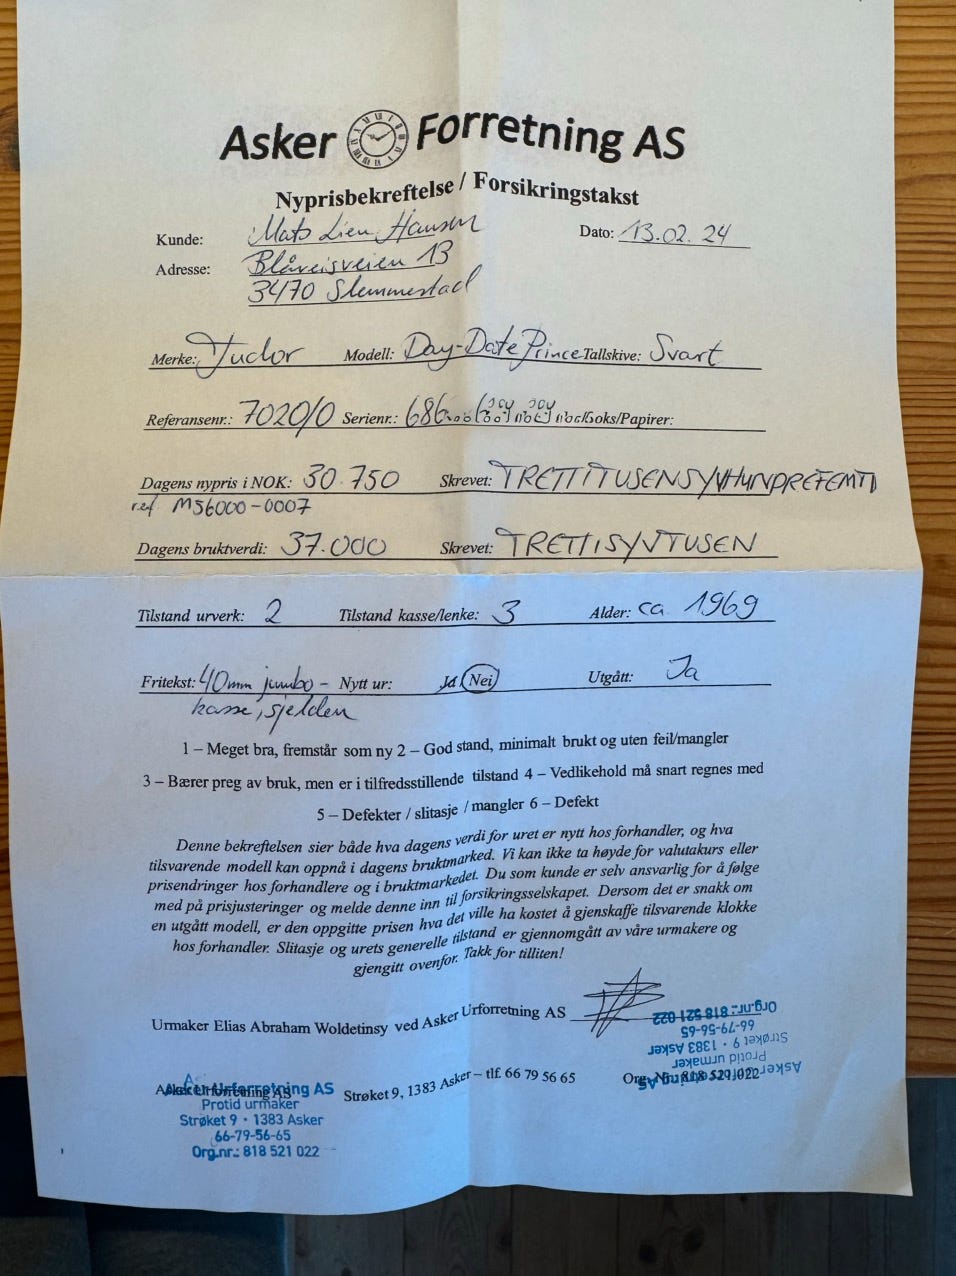 Asker Forretning AS
Nyprisbekreftelse / Forsikringstakst
Kunde: Mats Lien Hansen Dato: 13.02.24
Adresse: Blåveisveien 13
3470 Slemmestad
Merke: Tudor Modell: Day-Date Prince Tallskive: Svart
Referansenr.: 7020/0 Serienr.: 686 /Papirer:
Dagens nypris i NOK: 30.750 Skrevet: TRETTITUSENSYVHUNDREFEMTI
ref MS6000-0007
Dagens bruktverdi: 37.000 Skrevet: TRETTISYVTUSEN
Tilstand urverk: 2 Tilstand kasse/lenke: 3 Alder: ca. 1969
Fritekst: 40mm jumbo- Nytt ur: Ja Nei Utgått: Ja
kasse, sjelden
1 – Meget bra, fremstår som ny 2 – God stand, minimalt brukt og uten feil/mangler
3 – Bærer preg av bruk, men er i tilfredsstillende tilstand 4 – Vedlikehold må snart regnes med
5 – Defekter / slitasje / mangler 6 – Defekt
Denne bekreftelsen sier både hva dagens verdi for uret er nytt hos forhandler, og hva
tilsvarende modell kan oppnå i dagens bruktmarked. Vi kan ikke ta høyde for valutakurs eller
prisendringer hos forhandlere og i bruktmarkedet. Du som kunde er selv ansvarlig for å følge
med på prisjusteringer og melde denne inn til forsikringsselskapet. Dersom det er snakk om
en utgått modell, er den oppgitte prisen hva det ville ha kostet å gjenskaffe tilsvarende klokke
hos forhandler. Slitasje og urets generelle tilstand er gjennomgått av våre urmakere og
gjengitt ovenfor. Takk for tilliten!
Urmaker Elias Abraham Woldetinsy ved Asker Urforretning AS
Asker Urforretning AS
Protid urmaker
Strøket 9 · 1383 Asker
66-79-56-65
Org.nr.: 818 521 022
Asker Urforretning AS Strøket 9, 1383 Asker – tlf. 66 79 56 65 Org. Nr. 818 521 022
Asker Urforretning AS
Protid urmaker
Strøket 9 · 1383 Asker
66-79-56-65
Org.nr.: 818 521 022